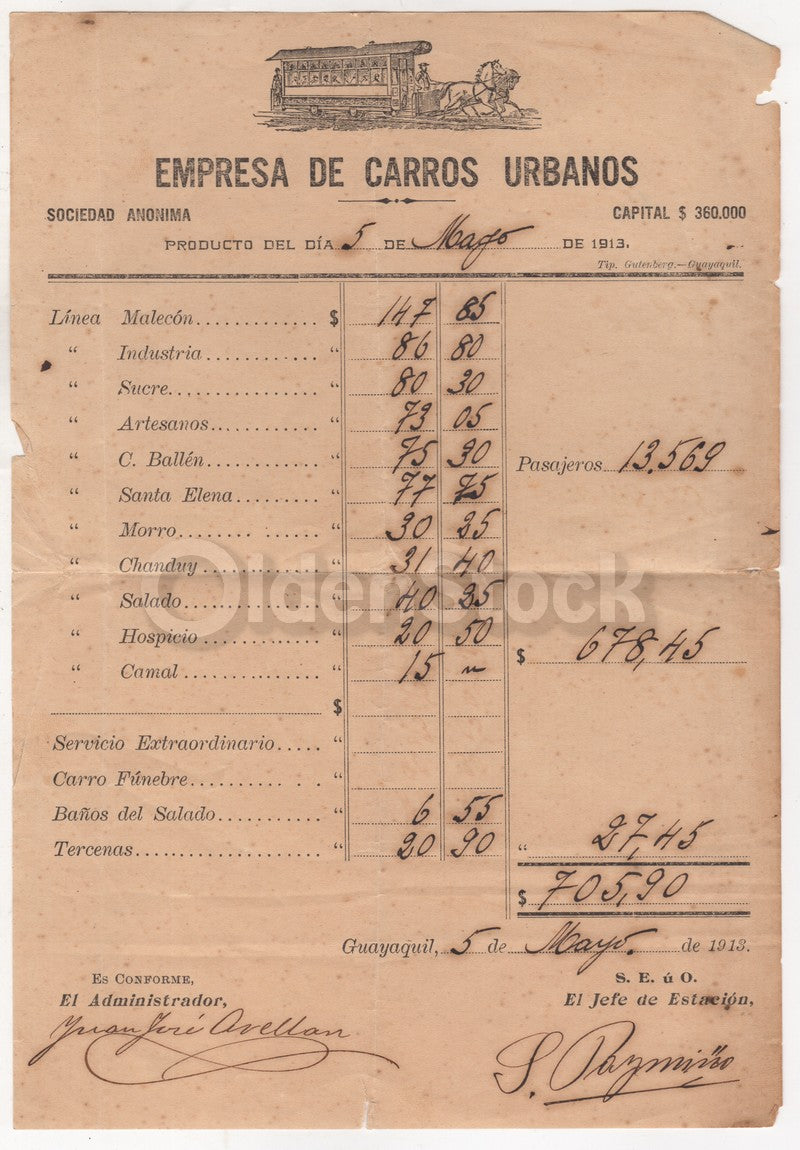 EMPRESA DE CARROS URBANOS
SOCIEDAD ANONIMA CAPITAL $ 360.000
PRODUCTO DEL DÍA 5 DE Mayo DE 1913.
Tip. Gutenberg.—Guayaquil.
Línea Malecón............. $ 147 85
“ Industria............ “ 86 80
“ Sucre................ “ 80 30
“ Artesanos............ “ 73 05
“ C. Ballén............ “ 75 30 Pasajeros 13.569
“ Santa Elena.......... “ 77 75
“ Morro................ “ 30 25
“ Chanduy.............. “ 31 40
OlderStock
“ Salado............... “ 40 25
“ Hospicio............. “ 20 50
“ Camal................ “ 15 „ $ 678,45
$
Servicio Extraordinario..... “
Carro Fúnebre............ “
Baños del Salado.......... “ 6 55
Tercenas................... “ 20 90 “ 27,45
$ 705,90
Guayaquil, 5 de Mayo. de 1913.
Es Conforme, S. E. ú O.
El Administrador, El Jefe de Estación,
Juan José Avellan S. Paymiño